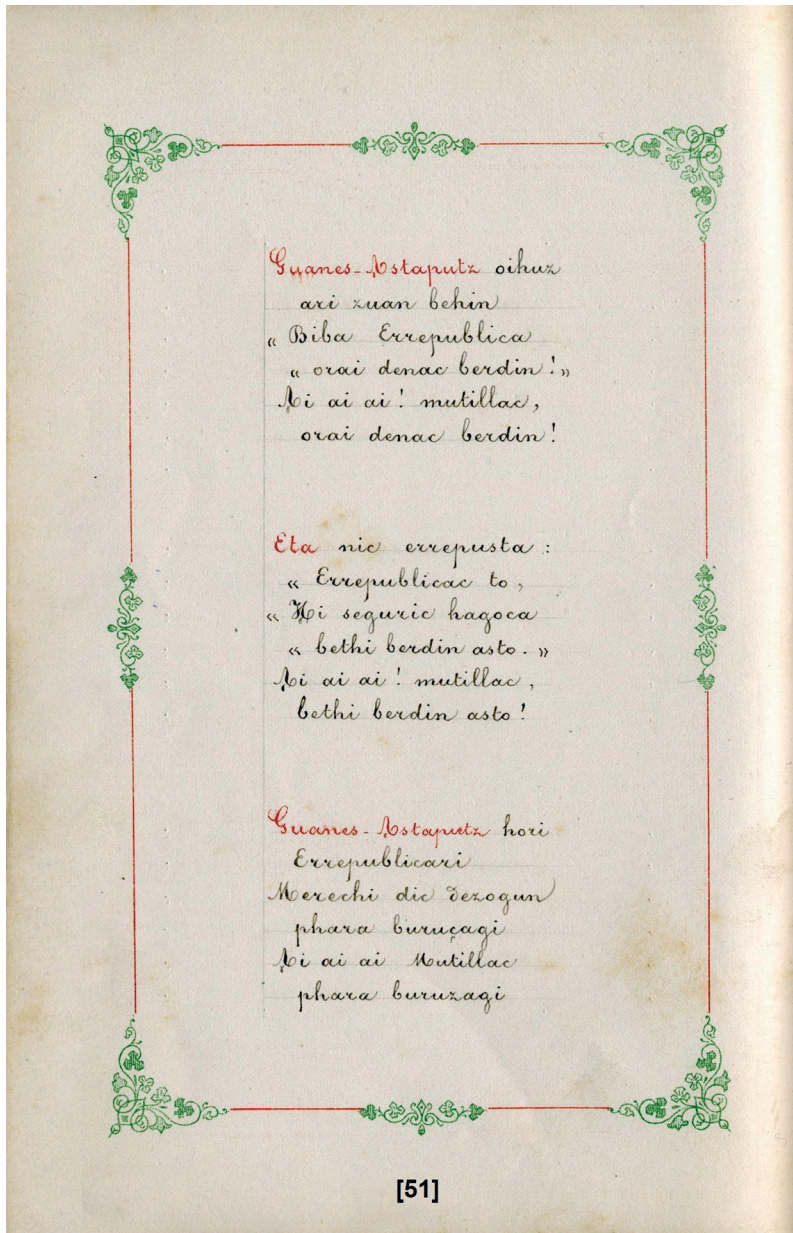 Guanes-Astaputz oihuz
ari zuan behin
« Biba Errepublica
« orai denac berdin! »
Ai ai ai! mutillac,
orai denac berdin!
Eta nic errepusta :
« Errepublicac to,
« Hi seguric hagoca
« bethi berdin asto. »
Ai ai ai! mutillac,
bethi berdin asto!
Guanes-Astaputz hori
Errepublicari
Merechi dic dezogun
phara buruçagi
Ai ai ai Mutillac
phara buruzagi
[51]